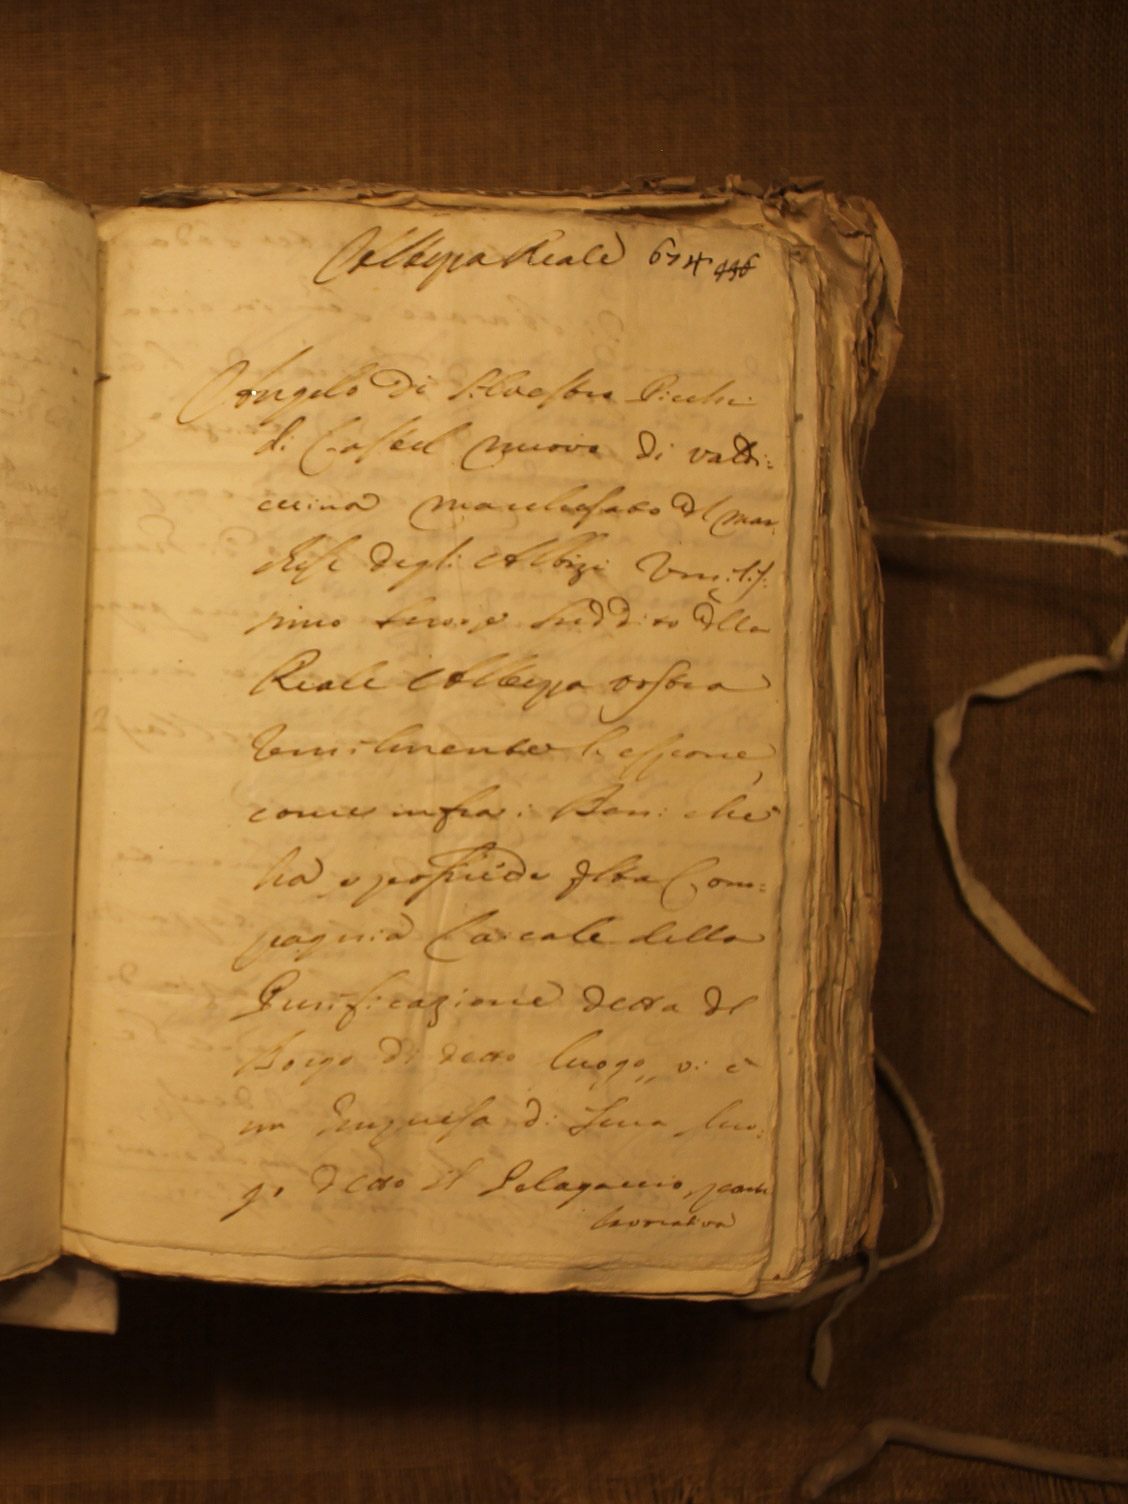 Altezza Reale 674 446
Angelo di Silvestro Picchi
di Castel nuovo di valdi:
cecina Marchesato del Mar
chese degli Albizi Umiliss:
simo servo, e suddito della
Reale Altezza vostra
umilmente li espone,
come infra: Beni che
ha e possiede della Com:
pagnia Laicale della
Purificazione detta del
Borgo di detto luogo, vi è
un di terra luo:
go detto il Pelagaccio, parte
lavorativa